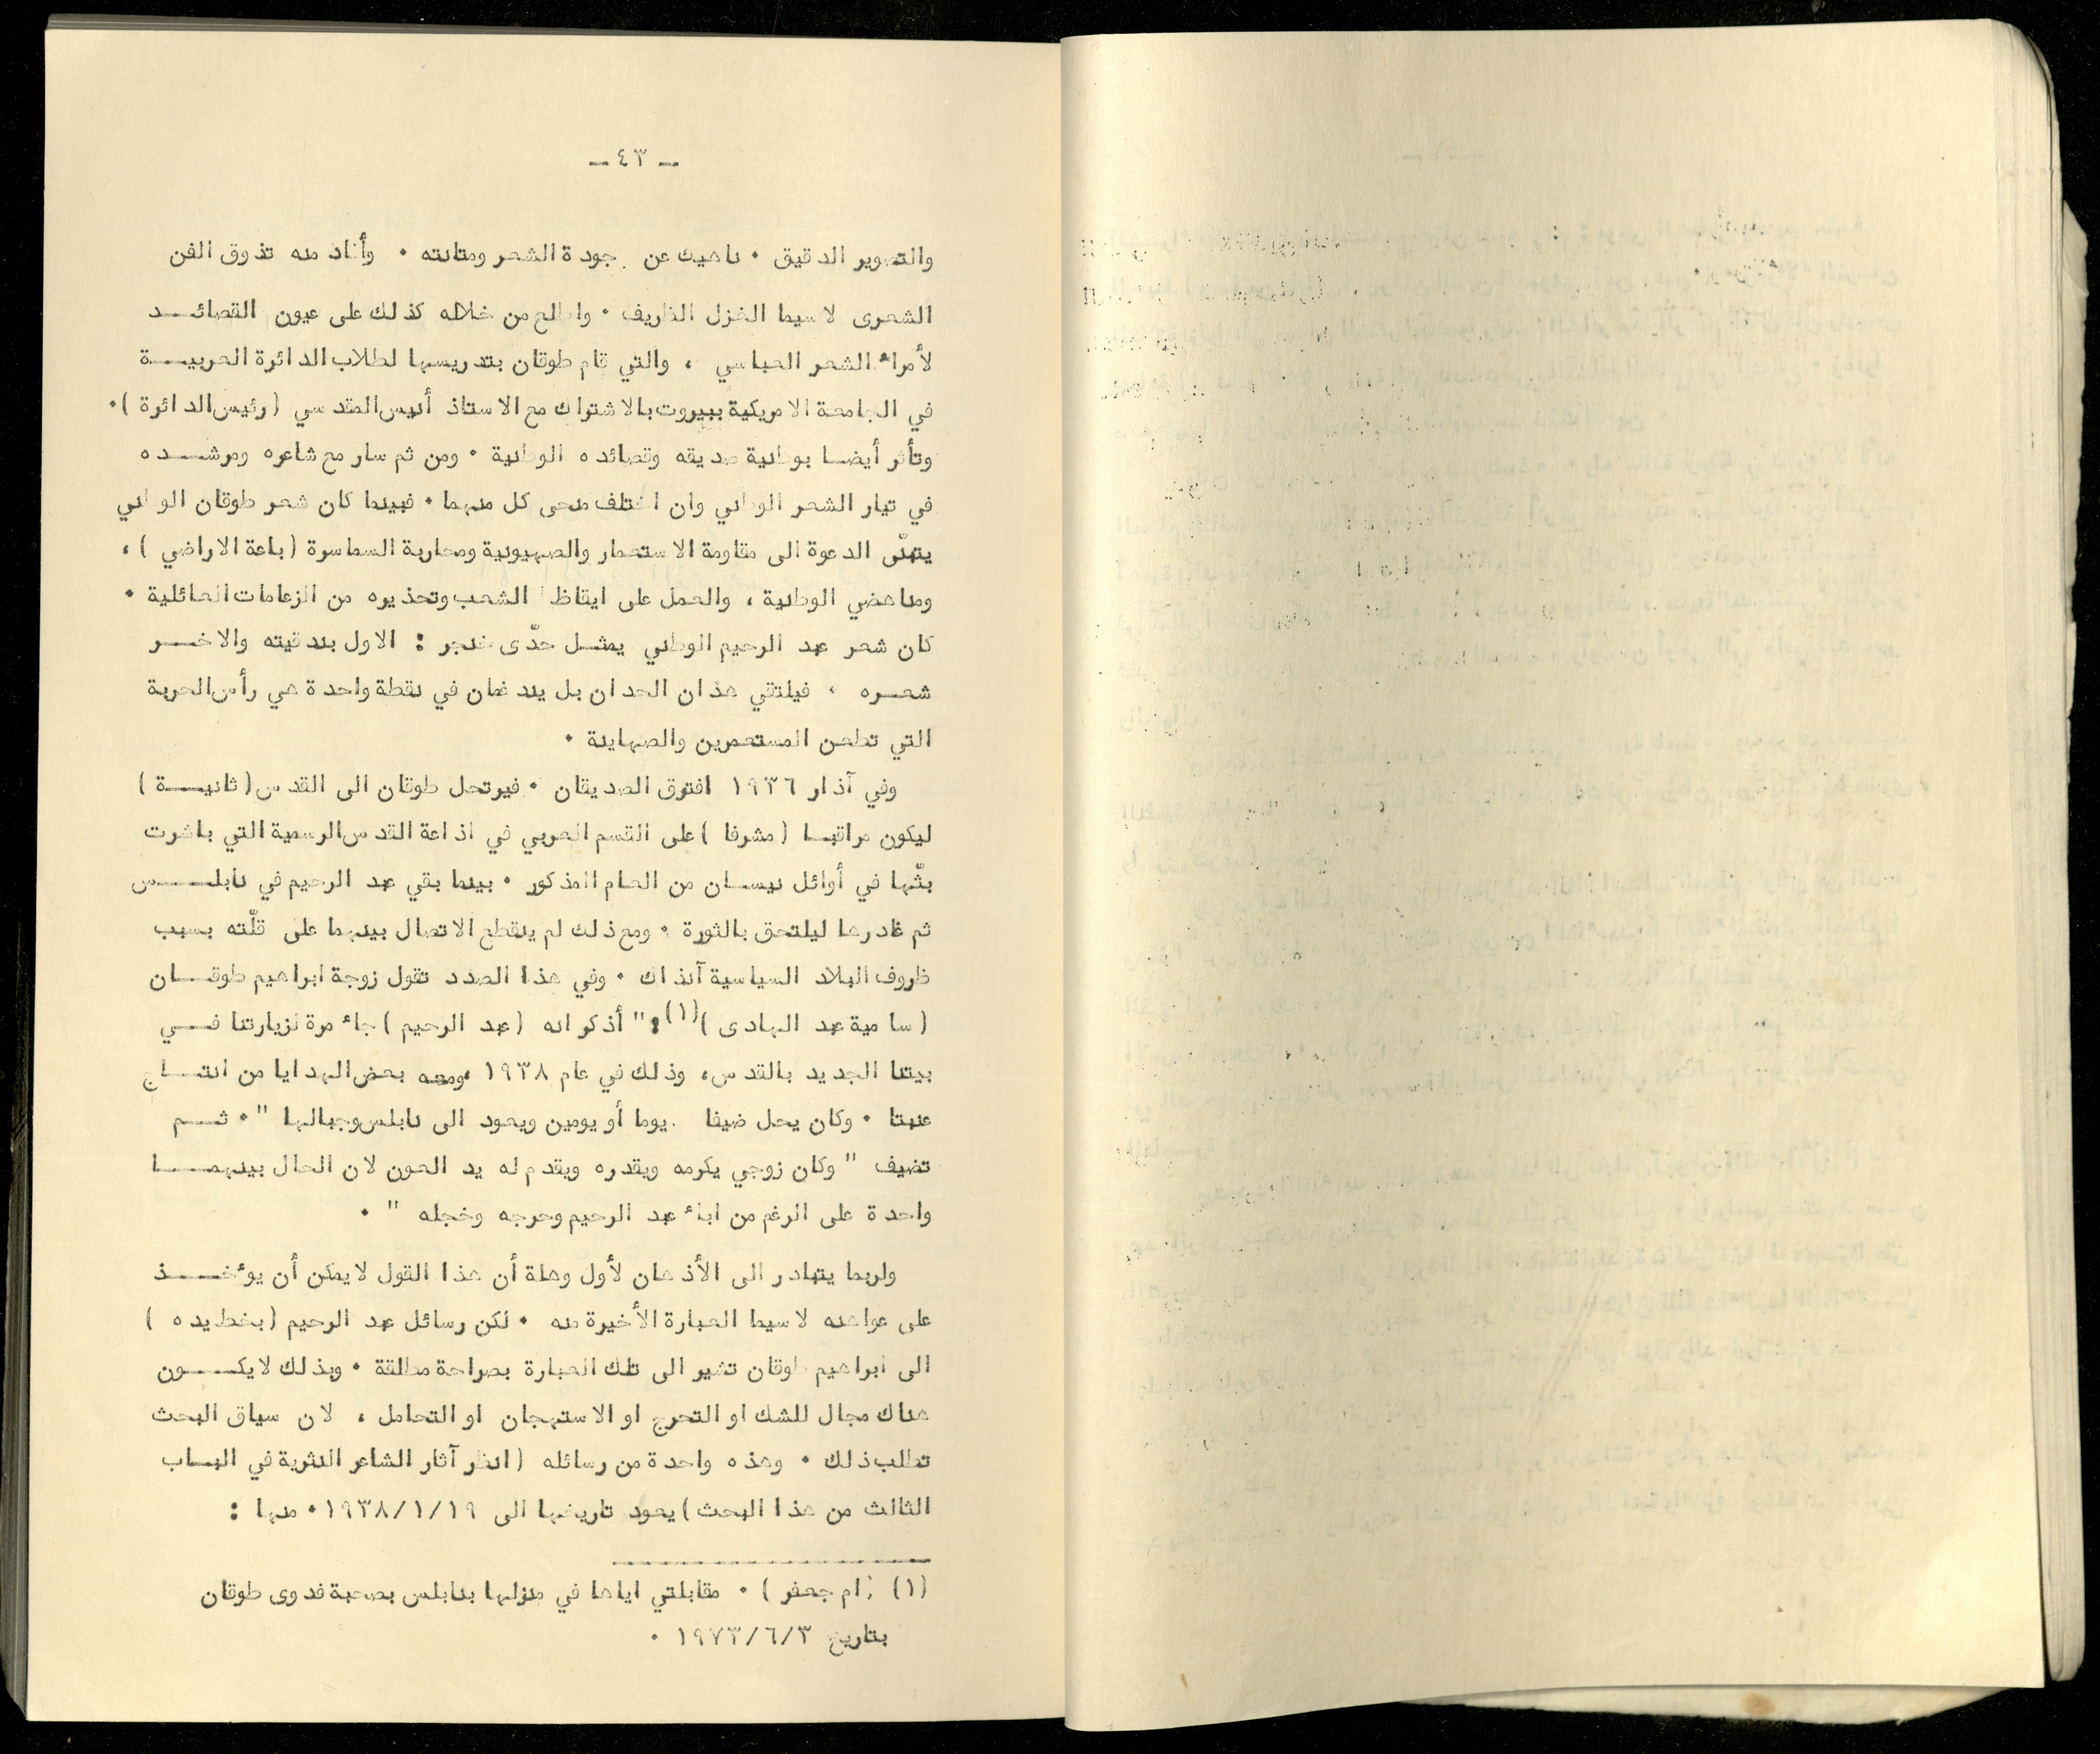 - ٤٣ -
والتصوير الدقيق . ناهيك عن جودة الشعر ومتانته . وأفاد منه تذوق الفن
الشعرى لا سيما الغزل الظريف . واطلع من خلاله كذلك على عيون القصائد
لأمراء الشعر العباسي ، والتي قام طوقان بتدريسها لطلاب الدائرة العربية
في الجامعة الامريكية ببيروت بالاشتراك مع الاستاذ أنيس المقدسي (رئيس الدائرة ) .
وتأثر أيضا بوطنية صديقه وقصائده الوطنية . ومن ثم سار مع شاعره ومرشده
في تيار الشعر الوطني وان اختلف منحى كل منهما . فبينما كان شعر طوقان الوطني
الدعوة الى مقاومة الاستعمار والصهيونية ومحاربة السماسرة (باعة الاراضي ) ،
ومناهضي الوطنية ، والعمل على ايقاظ الشعب وتحذيره من الزعامات العائلية .
كان شعر عبد الرحيم الوطني يمثل حدّى خنجر : الاول بندقيته والاخر
شعره . فيلتقي هذان الحدان بل يندغمان في نقطة واحدة هي رأس الحربة
التي تطعن المستعمرين والصهاينة .
وفي آذار ١٩٣٦ افترق الصديقان . فيرتحل طوقان الى القدس (ثانية )
ليكون مراقبا (مشرفا ) على القسم العربي في اذاعة القدس الرسمية التي باشرت
بثّها في أوائل نيسان من العام المذكور . بينما بقي عبد الرحيم في نابلس
ثم غادرها ليلتحق بالثورة . ومع ذلك لم ينقطع الاتصال بينهما على قلّته بسبب
ظروف البلاد السياسية آنذاك . وفي هذا الصدد تقول زوجة ابراهيم طوقان
(سامية عبد الهادى )(١): " أذكر انه (عبد الرحيم ) جاء مرة لزيارتنا في
بيتنا الجديد بالقدس، وذلك في عام ١٩٣٨ ،ومعه بعض الهدايا من انتاج
عنبتا . وكان يحل ضيفا يوما أو يومين ويعود الى نابلس وجبالها " . ثم
تضيف " وكان زوجي يكرمه ويقدره ويقدم له يد العون لان الحال بينهما
واحدة على الرغم من اباء عبد الرحيم وحرجه وخجله " .
ولربما يتبادر الى الأذهان لأول وهلة أن هذا القول لا يمكن أن يوءخذ
على عواهنه لا سيما العبارة الأخيرة منه . لكن رسائل عبد الرحيم (بخط يده )
الى ابراهيم طوقان تشير الى تلك العبارة بصراحة مطلقة . وبذلك لا يكون
هناك مجال للشك او التحرج او الاستهجان او التحامل ، لان سياق البحث
تطلب ذلك . وهذه واحدة من رسائله (انظر آثار الشاعر النثرية في الباب
الثالث من هذا البحث ) يعود تاريخها الى ١٩٣٨/١/١٩ . منها :
(١) (ام جعفر ) . مقابلتي اياها في منزلها بنابلس بصحبة فدوى طوقان
بتاريخ ١٩٧٣/٦/٣ .